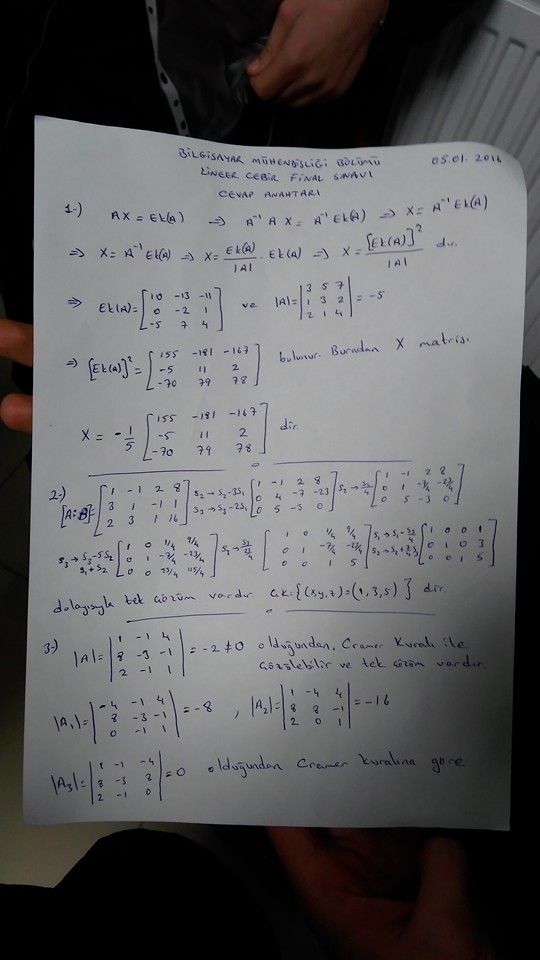 BİLGİSAYAR MÜHENDİSLİĞİ BÖLÜMÜ 05.01.2016
LİNEER CEBİR FİNAL SINAVI
CEVAP ANAHTARI
1-) AX = Ek(A) ⇒ A⁻¹ A X = A⁻¹ Ek(A) ⇒ X = A⁻¹ Ek(A)
⇒ X = A⁻¹ Ek(A) ⇒ X = Ek(A)/|A| . Ek(A) ⇒ X = [Ek(A)]²/|A| dır.
⇒ Ek(A) = [10 -13 -11; 0 -2 1; -5 7 4] ve |A| = |3 5 7; 1 3 2; 2 1 4| = -5
⇒ [Ek(A)]² = [155 -181 -167; -5 11 2; -70 79 78] bulunur. Buradan X matrisi
X = -1/5 [155 -181 -167; -5 11 2; -70 79 78] dir.
2-) [A:B] = [1 -1 2 8; 3 1 -1 1; 2 3 1 16] S₂→S₂-3S₁ S₃→S₃-2S₁ [1 -1 2 8; 0 4 -7 -23; 0 5 -3 0] S₂→S₂/4 [1 -1 2 8; 0 1 -7/4 -23/4; 0 5 -3 0]
S₃→S₃-5S₂ S₁+S₂ [1 0 1/4 9/4; 0 1 -7/4 -23/4; 0 0 23/4 115/4] [1 0 1/4 9/4; 0 1 -7/4 -23/4; 0 0 1 5] [1 0 0 1; 0 1 0 3; 0 0 1 5]
dolayısıyla tek çözüm vardır Ç.K={(x,y,z)=(1,3,5)} dir.
3-) |A| = |1 -1 4; 8 -3 -1; 2 -1 1| = -2 ≠ 0 olduğundan, Cramer Kuralı ile
çözülebilir ve tek çözüm vardır.
|A₁| = |-4 -1 4; 8 -3 -1; 0 -1 1| = -8 , |A₂| = |1 -4 4; 8 8 -1; 2 0 1| = -16
|A₃| = |1 -1 -4; 8 -3 8; 2 -1 0| = 0 olduğundan Cramer kuralına göre